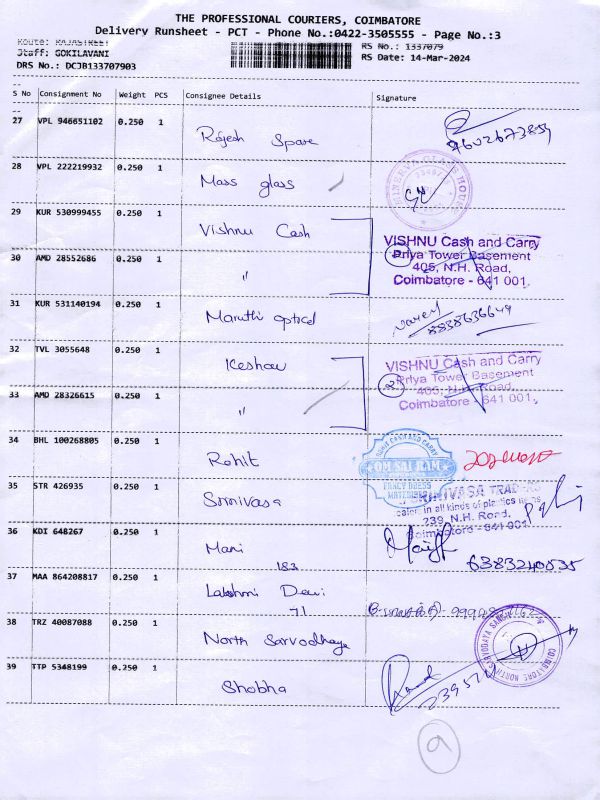 THE PROFESSIONAL COURIERS, COIMBATORE
Delivery Runsheet - PCT - Phone No.:0422-3505555 - Page No.:3
Route: RAJASTREET
Staff: GOKILAVANI
DRS No.: DCJB133707903
RS No.: 1337079
RS Date: 14-Mar-2024
S No Consignment No Weight PCS Consignee Details Signature
27 VPL 946651102 0.250 1 Rajesh Spare
28 VPL 222219932 0.250 1 Mass glass
29 KUR 530999455 0.250 1 Vishnu Cash
VISHNU Cash and Carry
Priya Tower Basement
405, N.H. Road,
Coimbatore - 641 001.
30 AMD 28552686 0.250 1 "
31 KUR 531140194 0.250 1 Maruthi optical
8838636649
32 TVL 3055648 0.250 1 Keshav
VISHNU Cash and Carry
Priya Tower Basement
405, N.H. Road,
Coimbatore - 641 001.
2
33 AMD 28326615 0.250 1 "
34 BHL 100268805 0.250 1 Rohit
OM SAI RAM
35 STR 426935 0.250 1 Srinivasa
239, N.H. Road,
Coimbatore - 641 001
36 KDI 648267 0.250 1 Mani
183
6383240835
37 MAA 864208817 0.250 1 Lakshmi Devi
71
38 TRZ 40087088 0.250 1 North Sarvodhaya
39 TTP 5348199 0.250 1 Shobha
9